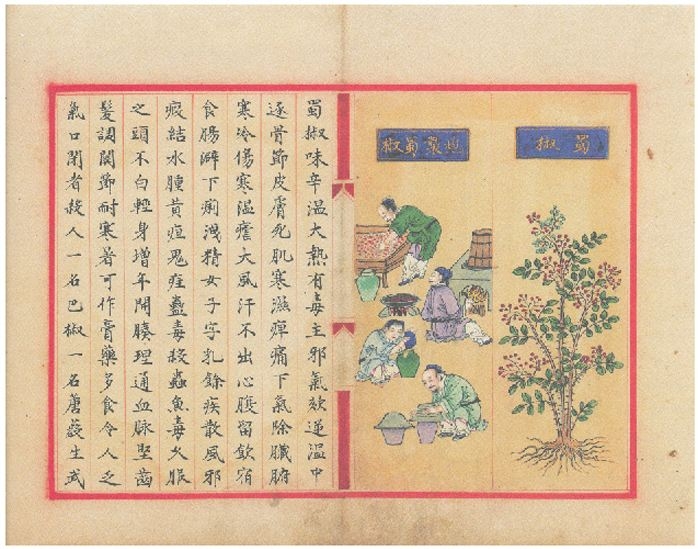 蜀椒
炮製蜀椒
蜀椒味辛溫大熱有毒主邪氣欬逆溫中
逐骨節皮膚死肌寒濕痹痛下氣除臟腑
寒冷傷寒溫瘧大風汗不出心腹留飲宿
食腸澼下痢洩精女子字乳餘疾散風邪
瘕結水腫黃疸鬼疰蠱毒殺蟲魚毒久服
之頭不白輕身增年開腠理通血脉堅齒
髮調關節耐寒暑可作膏藥多食令人乏
氣口閉者殺人一名巴椒一名蓎藙生武